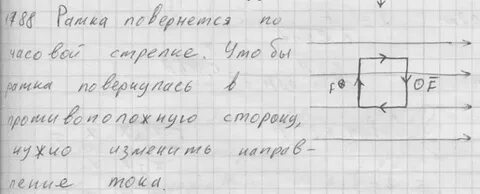 1788 Рамка повернется по
часовой стрелке. Чтобы
рамка повернулась в
противоположную сторону,
нужно изменить направ-
ление тока.
F⊗
⊙ F̅